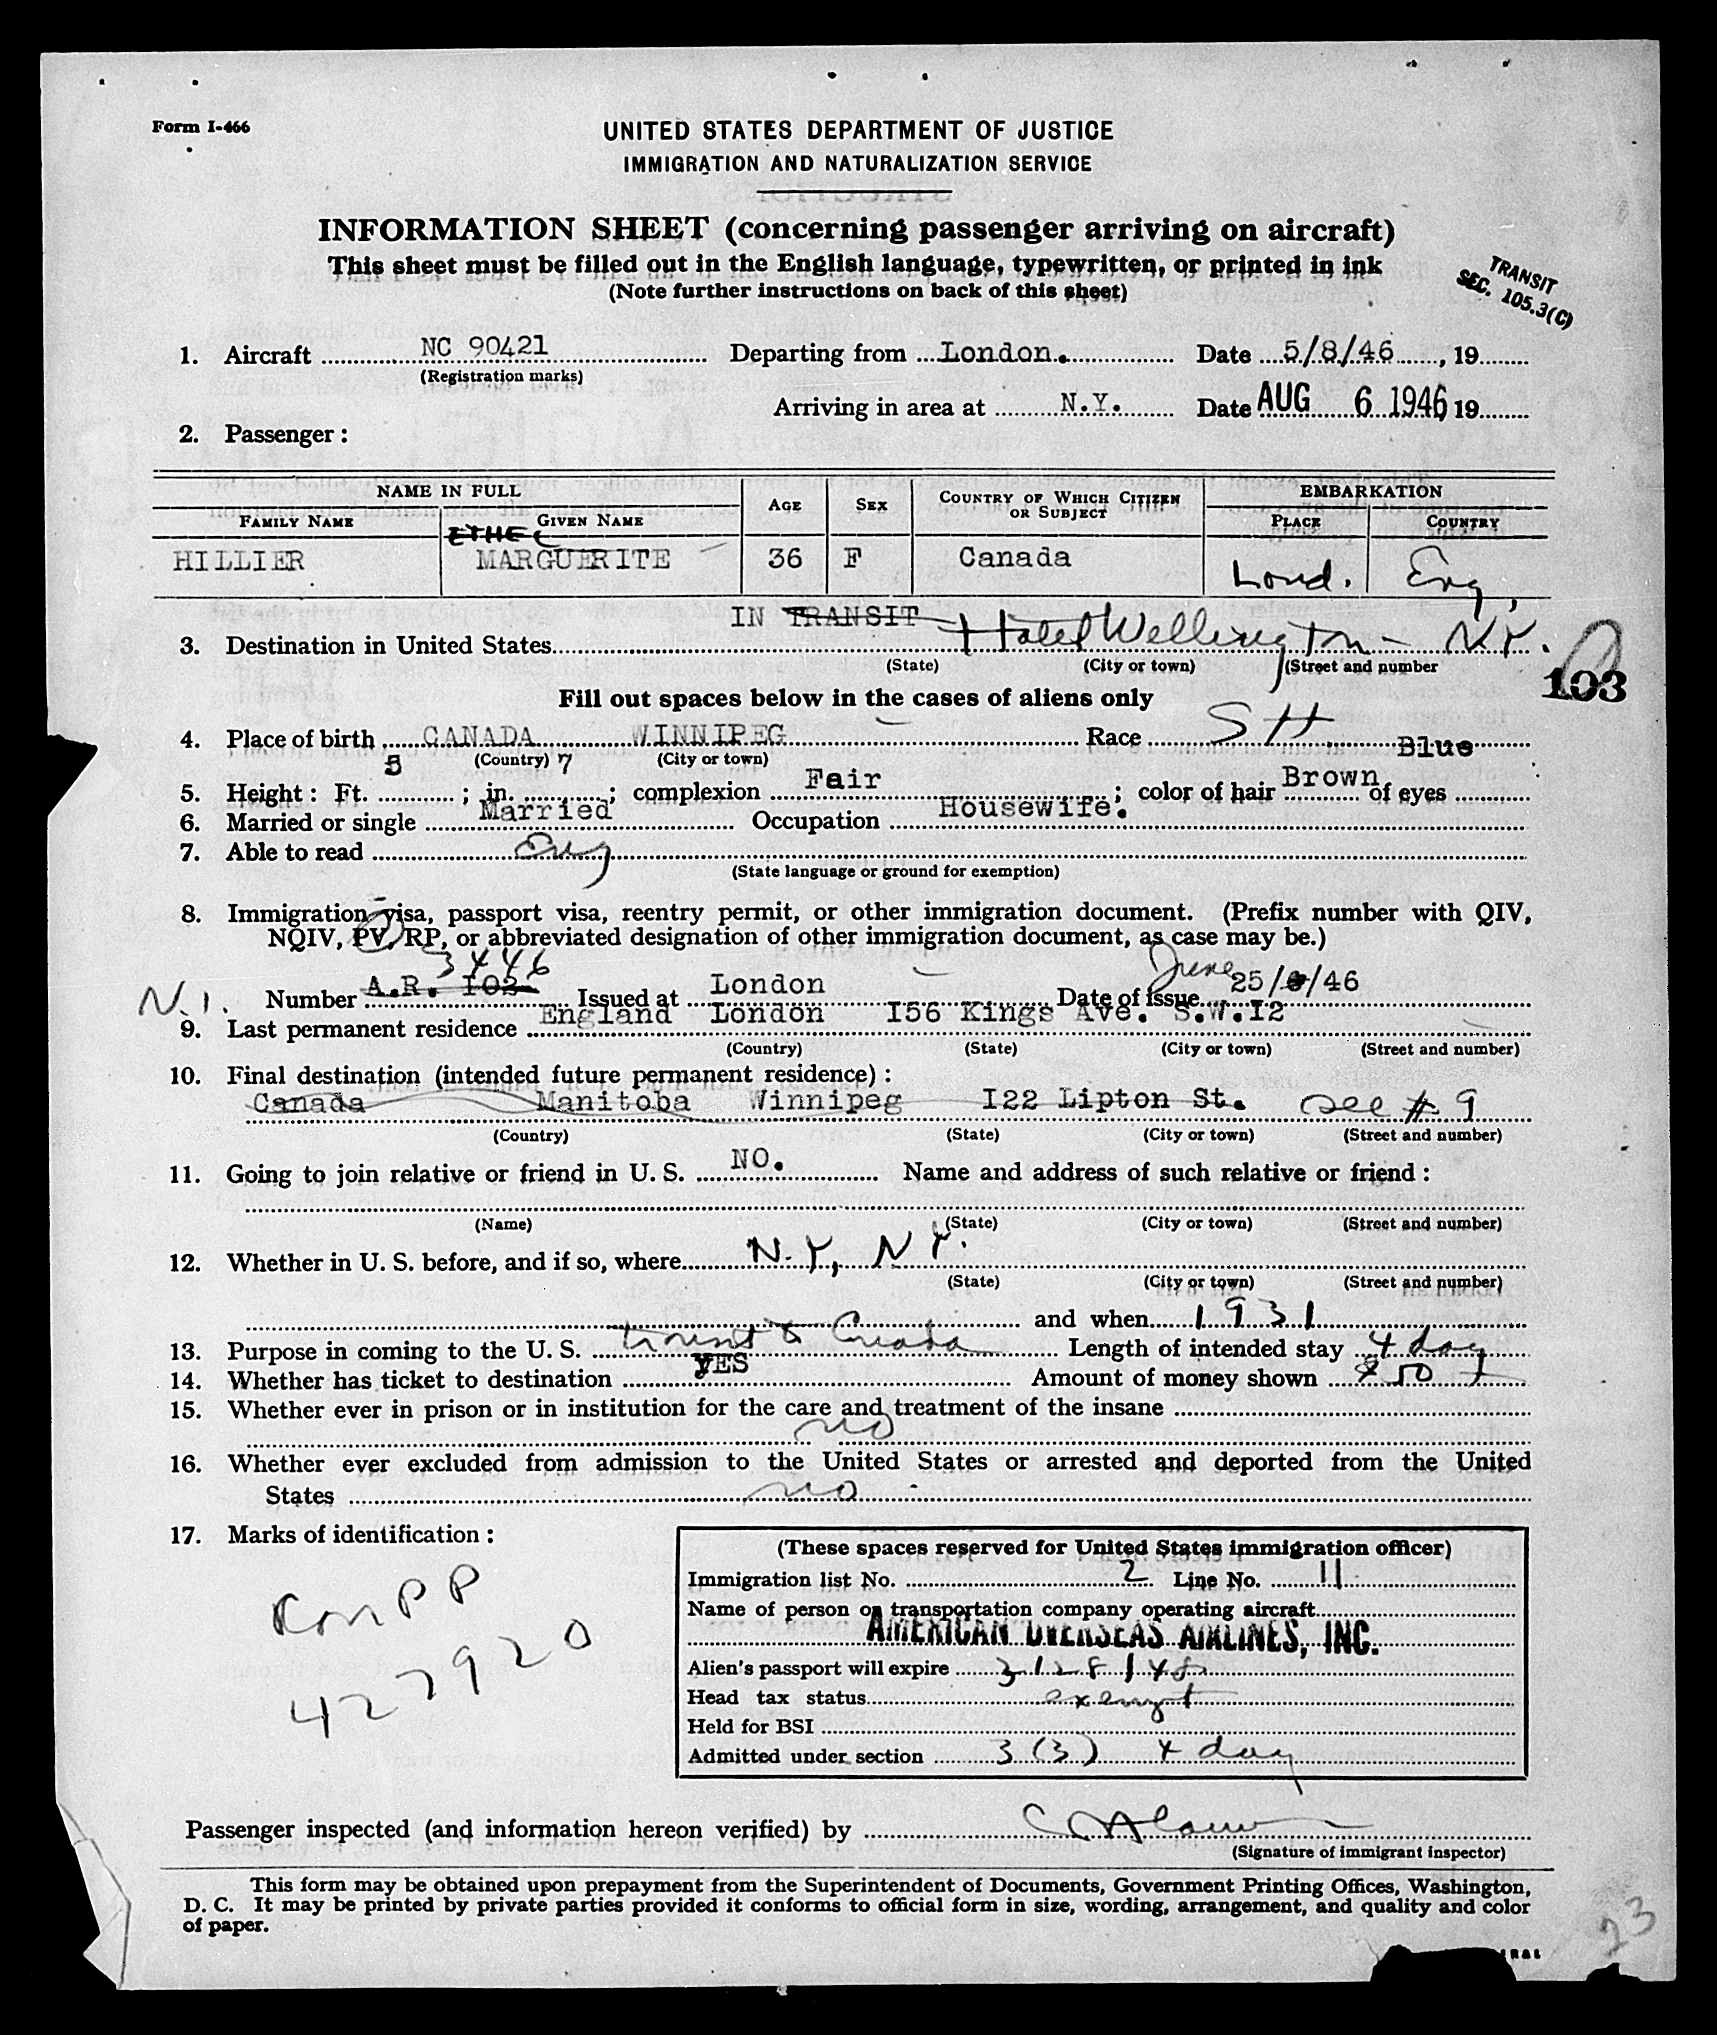 Form I-466
UNITED STATES DEPARTMENT OF JUSTICE
IMMIGRATION AND NATURALIZATION SERVICE
INFORMATION SHEET (concerning passenger arriving on aircraft)
This sheet must be filled out in the English language, typewritten, or printed in ink
(Note further instructions on back of this sheet)
TRANSIT
SEC. 105.3(C)
1. Aircraft NC 90421 Departing from London. Date 5/8/46, 19
(Registration marks)
Arriving in area at N.Y. Date AUG 6 1946 19
2. Passenger:
NAME IN FULL AGE SEX COUNTRY OF WHICH CITIZEN OR SUBJECT EMBARKATION
FAMILY NAME GIVEN NAME PLACE COUNTRY
ETHEL
HILLIER MARGUERITE 36 F Canada Lond. Eng.
IN TRANSIT Hotel Wellington - N.Y.
3. Destination in United States
(State) (City or town) (Street and number
103
Fill out spaces below in the cases of aliens only
4. Place of birth CANADA WINNIPEG Race S H Blue
(Country) (City or town)
5. Height: Ft. 5; in. 7; complexion Fair; color of hair Brown of eyes
6. Married or single Married Occupation Housewife.
7. Able to read Eng
(State language or ground for exemption)
8. Immigration visa, passport visa, reentry permit, or other immigration document. (Prefix number with QIV,
NQIV, PV, RP, or abbreviated designation of other immigration document, as case may be.)
3446
N.I. Number A.R. I02 Issued at London Date of Issue June 25/6/46
9. Last permanent residence England London I56 Kings Ave. S.W.I2
(Country) (State) (City or town) (Street and number)
10. Final destination (intended future permanent residence):
Canada Manitoba Winnipeg I22 Lipton St. see # 9
(Country) (State) (City or town) (Street and number)
11. Going to join relative or friend in U. S. NO. Name and address of such relative or friend:
(Name) (State) (City or town) (Street and number)
12. Whether in U. S. before, and if so, where N.Y, N Y.
(State) (City or town) (Street and number)
and when 1931
13. Purpose in coming to the U. S. transit to Canada Length of intended stay 4 day
14. Whether has ticket to destination YES Amount of money shown $50
15. Whether ever in prison or in institution for the care and treatment of the insane
no
16. Whether ever excluded from admission to the United States or arrested and deported from the United
States no
17. Marks of identification:
PP
427920
(These spaces reserved for United States immigration officer)
Immigration list No. 2 Line No. 11
Name of person or transportation company operating aircraft
AMERICAN OVERSEAS AIRLINES, INC.
Alien's passport will expire 3/28/48
Head tax status exempt
Held for BSI
Admitted under section 3(3) 4 day
Passenger inspected (and information hereon verified) by
(Signature of immigrant inspector)
This form may be obtained upon prepayment from the Superintendent of Documents, Government Printing Offices, Washington,
D. C. It may be printed by private parties provided it conforms to official form in size, wording, arrangement, and quality and color
of paper.
23